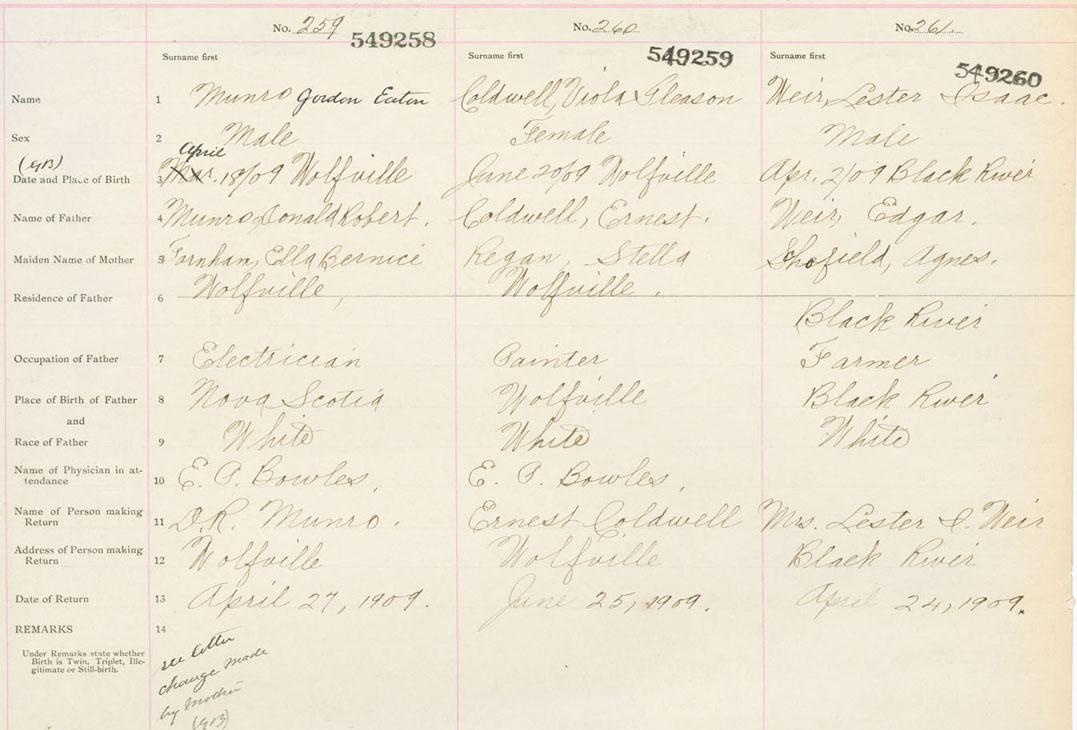 No. 259 549258 No. 260 549259 No. 261. 549260
Surname first Surname first Surname first
Name 1 Munro Gordon Eaton Coldwell, Viola Gleason Weir, Lester Isaac.
Sex 2 Male Female Male
April
Date and Place of Birth 3 Mar. 18/09 Wolfville June 20/09 Wolfville Apr. 2/09 Black River
Name of Father 4 Munro, Donald Robert. Coldwell, Ernest. Weir, Edgar.
Maiden Name of Mother 5 Farnhan, Ella Bernice Regan, Stella Shofield, Agnes.
Residence of Father 6 Wolfville, Wolfville. Black River
Occupation of Father 7 Electrician Painter Farmer
Place of Birth of Father 8 Nova Scotia Wolfville Black River
and
Race of Father 9 White White White
Name of Physician in at-
tendance 10 E. P. Bowles, E. P. Bowles,
Name of Person making
Return 11 D.R. Munro. Ernest Coldwell Mrs. Lester I. Weir
Address of Person making
Return 12 Wolfville Wolfville Black River
Date of Return 13 April 27, 1909. June 25, 1909. April 24, 1909.
REMARKS 14
Under Remarks state whether
Birth is Twin, Triplet, Ille-
gitimate or Still-birth.
see letter
change made
by Mother